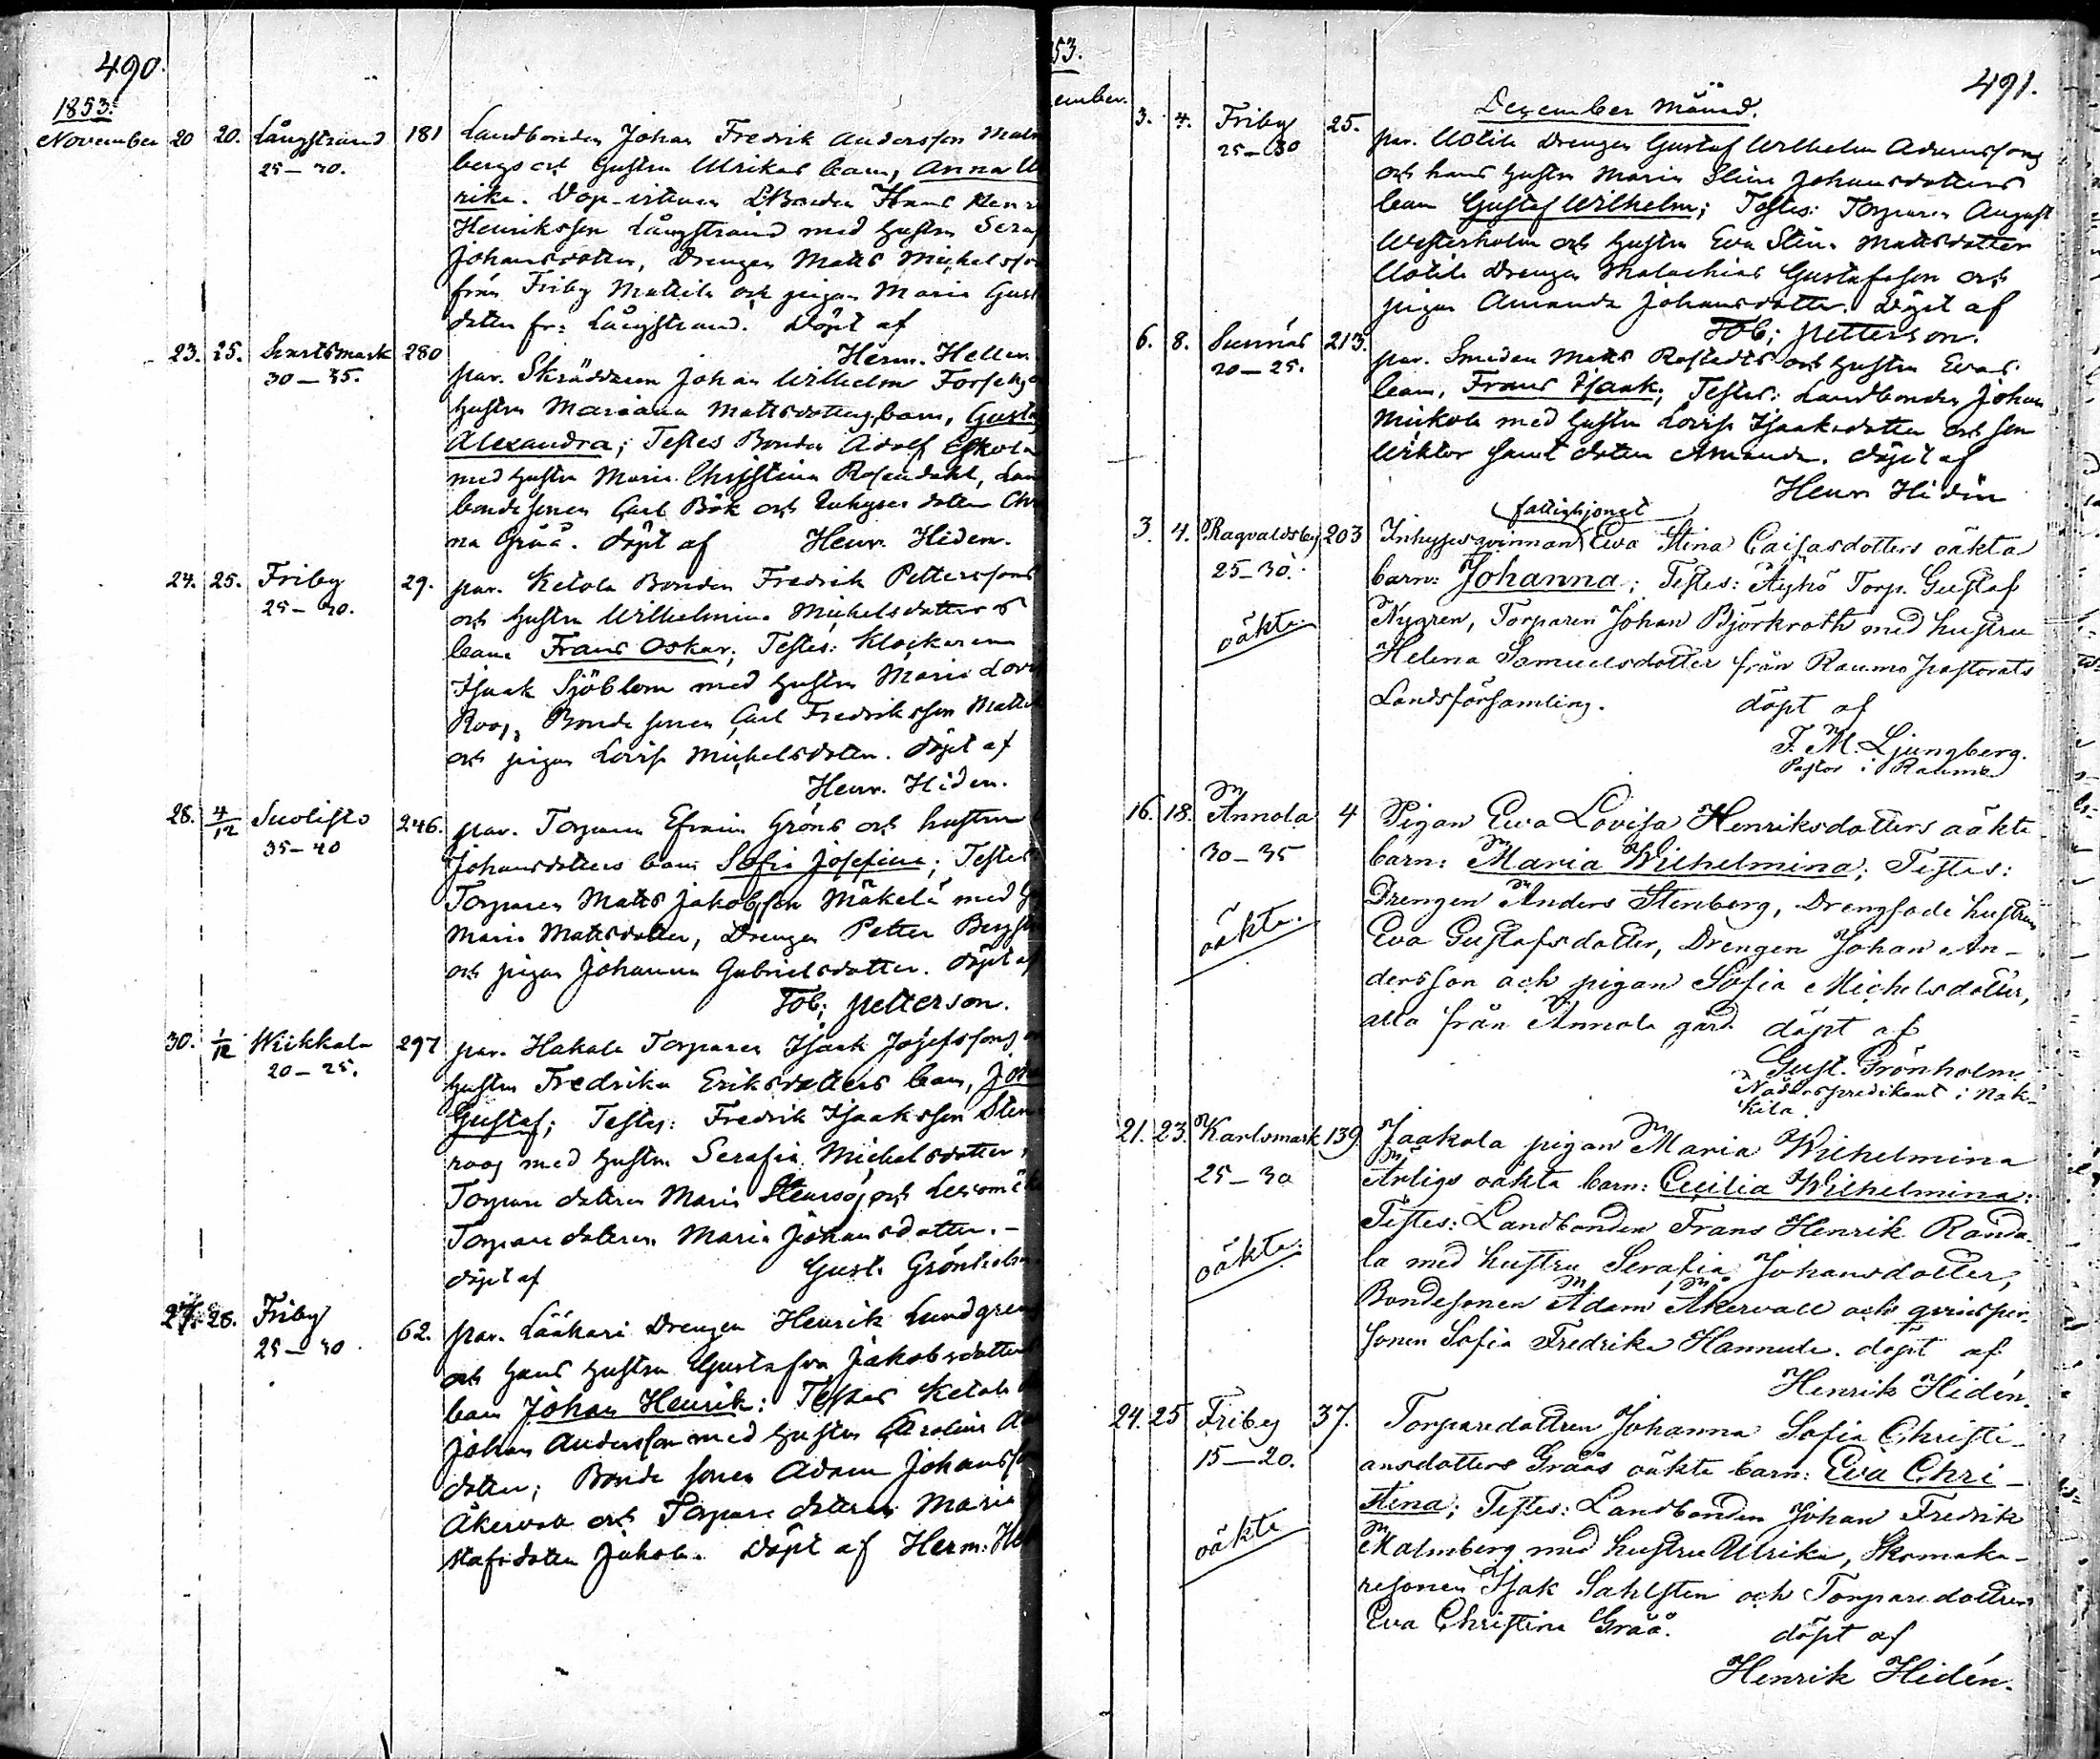 490.
1853.
November 20 20. Långstrand 181 Landbonden Johan Fredrik Andersson Malm
25–30. bergs och hustru Ulrikas barn, Anna Ul
rika. Dop-vittnen LBonden Frans Henr
Henriksson Långstrand med hustru Seraf
Johansdotter, Drengen Matts Michelsson
från Friby Mattila och pigan Maria Gust
dotter fr: Långstrand. Döpt af
Herm. Hellen.
23. 25. 280 par. Skräddaren Johan Wilhelm Forss
30–35. hustru Mariana Mattsdotters barn, Gusta
Alexandra; Testes Bonden Adolf Eskola
med hustru Maria Christina Rosendahl, Lan
bondesonen Carl Bök och Inhyses dotter Chr
na Gråå. döpt af Henr. Hiden.
24. 25. Friby 29. par. Ketola Bonden Fredrik Petterssons
25–30. och hustru Wilhelmina Michelsdotters
barn Frans Oskar; Testes: Klockaren
Isaak Sjöblom med hustru Maria Lovi
Roos, Bonde sonen Carl Fredriksson Matti
och pigan Lovisa Michelsdotter. döpt af
Henr. Hiden.
28. 4/12 Suolisto 246. par. Torparen Efraim Gröns och hustru
35–40 Johansdotters barn Sofia Josefina; Testes
Torparen Matts Jakobsson Mäkelä med
Maria Mattsdotter, Drengen Petter Bergst
och pigan Johanna Gabrielsdotter. döpt af
Tob; Petterson.
30. 1/12 Wiikkala 297 par. Hakala Torparen Isaak Josefssons
20–25. hustru Fredrika Eriksdotters barn, Joha
Gustaf; Testes: Fredrik Isaaksson Sten
roos med hustru Serafia Michelsdotter,
Torpare dottren Maria och
Torpare dottren Maria Johansdotter.–
döpt af Gust. Grönholm.
27. 28. Friby 62. par. Lääkäri Drengen Henrik Lundgrens
25–30. och hans hustru Gustafva Jakobsdotters
barn Johan Henrik: Testes Ketola
Johan Andersson med hustru Carolina
dotter; Bonde sonen Adam Johansson
Åkervall och Torpare dottren Maria
stafsdotter Jakola. Döpt af Herm. Hel
53.
ember.
491.
December Månad.
3. 4. Friby 25. par. Uotila Drengen Gustaf Wilhelm Adamssons
25–30 och hans hustru Maria Stina Johansdotters
barn Gustaf Wilhelm; Testes: Torparen August
Westerholm och hustru Eva Stina Mattsdotter
Uotila Drengen Malachias Gustafsson och
pigan Amanda Johansdotter. Döpt af
Tob; Petterson.
6. 8. Sunnäs 213. par. Smeden Matts Rostedts och hustru Evas
20–25. barn, Frans Isaak; Testes: Landbonden Johan
med hustru Lovisa Isaaksdotter och son
Wiktor samt dotter Amanda. döpt af
Henr. Hidén
fattighjonet
3. 4. Ragvaldsby 203 Inhysesqvinnan Eva Stina Caisasdotters oäkta
25–30. barn: Johanna; Testes: Äyhö Torp. Gustaf
oäkta. Nygren, Torparen Johan Björkroth med hustru
Helena Samuelsdotter från Raumo Pastorats
Landsförsamling. döpt af
F. M. Ljungberg.
Pastor i Raumo
16. 18. Annola 4 Pigan Eva Lovisa Henriksdotters oäkta
30–35 barn: Maria Wilhelmina; Testes:
oäkta. Drengen Anders Stenberg, Drengsade hustrun
Eva Gustafsdotter, Drengen Johan An-
dersson och pigan Sofia Michelsdotter,
alla från Annola gård. döpt af
Gust. Grönholm.
Nådårspredikant i Nak-
kila.
21. 23. Karlsmark 139 Jaakola pigan Maria Wilhelmina
25–30 Ärligs oäkta barn: Cecilia Wilhelmina:
oäkta. Testes: Landbonden Frans Henrik Randa-
la med hustru Serafia Johansdotter,
Bondesonen Adam Åkervall och qvinsper-
sonen Sofia Fredrika Hannula. döpt af
Henrik Hidén.
24. 25 Friby 37. Torparedottren Johanna Sofia Christi-
15–20. ansdotters Gråås oäkta barn: Eva Chri-
oäkta stina; Testes: Landbonden Johan Fredrik
Malmberg med hustru Ulrika, Skomaka-
resonen Isak Sahlsten och Torparedottren
Eva Christina Gråå. döpt af
Henrik Hidén.